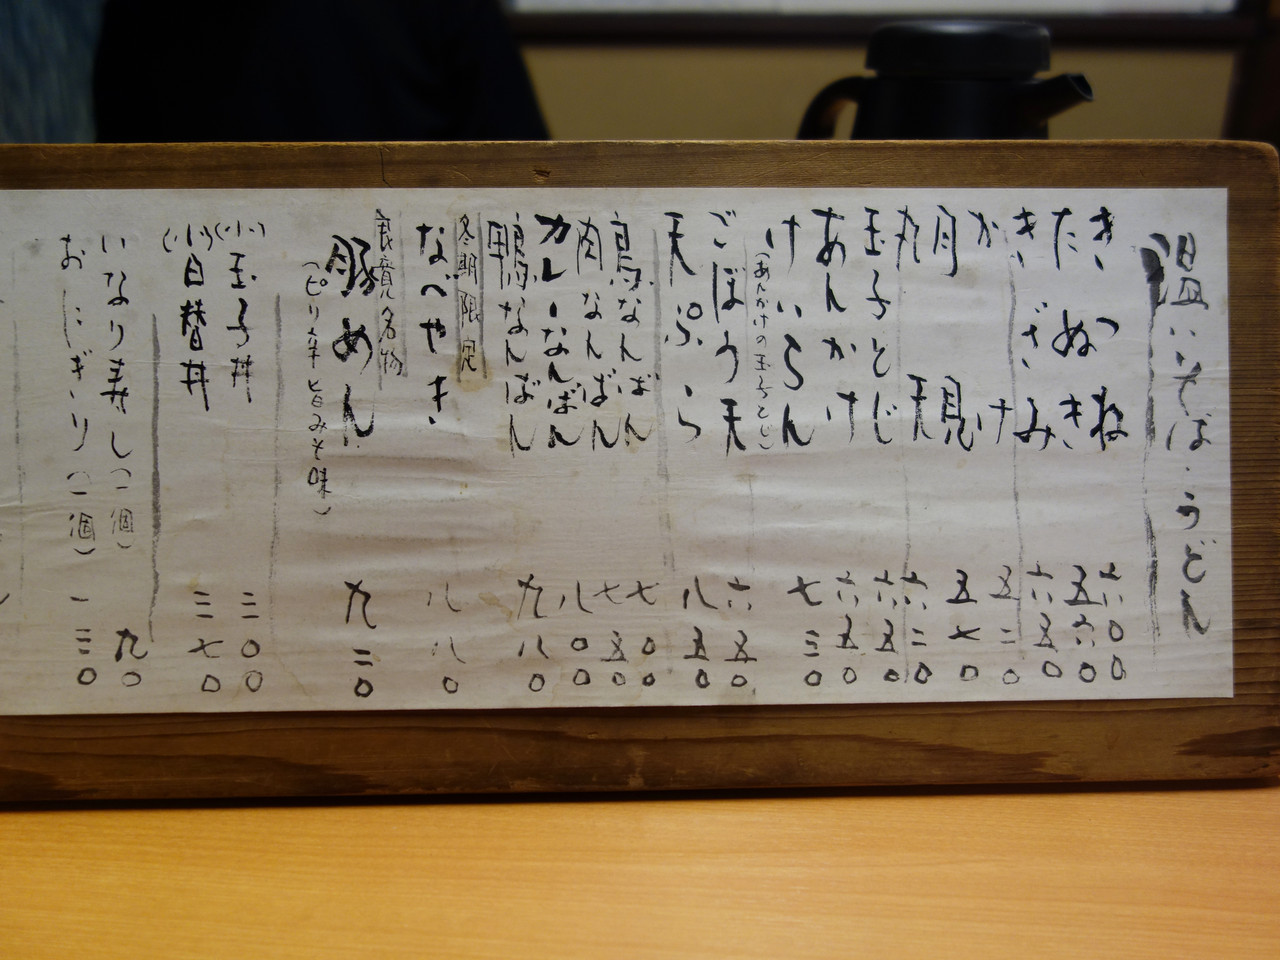 温いそば・うどん
きつね 六〇〇
たぬき 五六〇
きざみ 六五〇
かけ 五二〇
月見 五七〇
丸天 六二〇
玉子とじ 六五〇
あんかけ 六五〇
けいらん 七三〇
(あんかけの玉子とじ)
ごぼう天 六五〇
天ぷら 八五〇
鳥なんばん 七〇〇
肉なんばん 七五〇
カレーなんばん 八〇〇
鴨なんばん 九八〇
冬期限定
なべやき 八八〇
名物
豚めん 九二〇
(ピリ辛旨みそ味)
(小)玉子丼 三〇〇
(小) 丼 三七〇
いなり寿し(一個) 九〇
おにぎり(一個) 一三〇